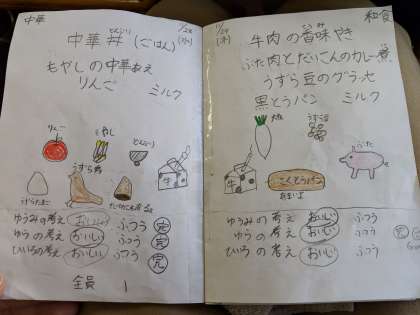 中華
中華丼(ごはん)
どんぶり
11/28
(水)
もやしの中華あえ
りんご ミルク
りんご
もやし
どんぶり
うずら肉
牛
うずらたまご
ゆうみの考え おいしい ふつう 完
ゆうの考え おいしい ふつう 完
ひいろの考え おいしい ふつう 完
全員
11/29
(木)
和食
牛肉の香味やき
ぶた肉とだいこんのカレー煮
うずら豆のグラッセ
黒とうパン ミルク
大根
うずら豆
ぶた
牛
こくとうパン
ゆうみの考え おいしい ふつう
ゆうの考え おいしい ふつう
ひいろの考え おいしい ふつう